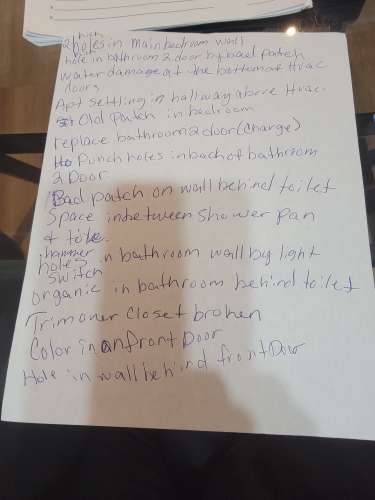 2 holes in Main bedroom wall
hole in bathroom 2 door by bad patch
water damage at the bottom of Hvac
door,
Apt settling in hallway above Hvac.
Old Patch in bedroom
replace bathroom 2 door (Charge)
Punch holes in back of bathroom
2 Door
Bad patch on wall behind toilet
Space inbetween Shower pan
& tile.
hammer
holes in bathroom wall by light
Switch
organic in bathroom behind toilet
Trim over Closet broken
Color in on front Door
Hole in wall behind front Door